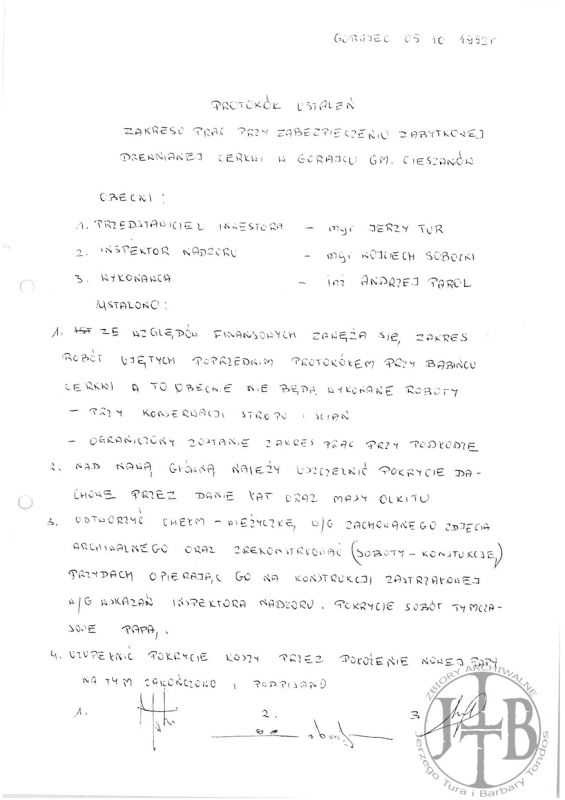 GORAJEC 05 10 1992r
PROTOKÓŁ USTALEŃ
ZAKRESU PRAC PRZY ZABEZPIECZENIU ZABYTKOWEJ
DREWNIANEJ CERKWI W GORAJCU GM. CIESZANÓW
OBECNI :
1. PRZEDSTAWICIEL INWESTORA – mgr JERZY TUR
2. INSPEKTOR NADZORU – mgr WOJCIECH SOBOCKI
3. WYKONAWCA – inż ANDRZEJ PAROL
USTALONO :
1. ZE WZGLĘDÓW FINANSOWYCH ZAWĘŻA SIĘ ZAKRES
ROBÓT UJĘTYCH POPRZEDNIM PROTOKÓŁEM PRZY BABIŃCU
CERKWI A TO OBECNIE NIE BĘDĄ WYKONANE ROBOTY
– PRZY KONSERWACJI STROPU I ŚCIAN
– OGRANICZONY ZOSTANIE ZAKRES PRAC PRZY PODŁODZE
2. NAD NAWĄ GŁÓWNĄ NALEŻY USZCZELNIĆ POKRYCIE DA-
CHOWE PRZEZ DANIE ŁAT ORAZ MASY OLKITU
3. ODTWORZYĆ CHEŁM – WIEŻYCZKĘ W/G ZACHOWANEGO ZDJĘCIA
ARCHIWALNEGO ORAZ ZREKONSTRUOWAĆ (SOBOTY – KONSTUKCJĘ,)
PRZYDACH OPIERAJĄC GO NA KONSTRUKCJI ZASTRZAŁOWEJ
W/G WSKAZAŃ INSPEKTORA NADZORU. POKRYCIE SOBÓT TYMCZA-
SOWE PAPĄ.
4. UZUPEŁNIĆ POKRYCIE KOPUŁY PRZEZ POŁOŻENIE NOWEJ PAPY
NA TYM ZAKOŃCZONO I PODPISANO
1. 2. 3.
ZBIORY ARCHIWALNE
JTBT
Jerzego Tura i Barbary Tondos